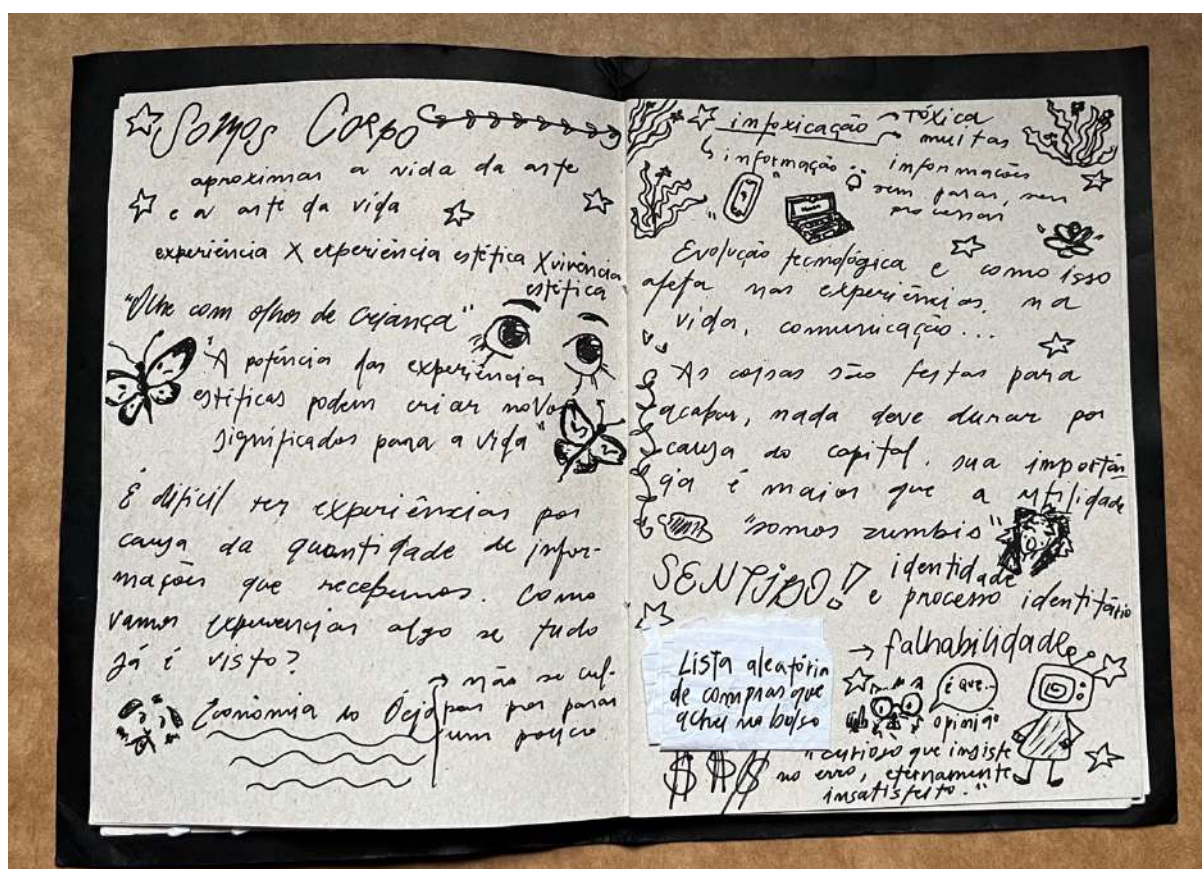 Somos Corpo
aproximar a vida da arte
e a arte da vida
experiência X experiência estética X vivência
estética
"Olhe com olhos de criança"
"A potência das experiências
estéticas podem criar novos
significados para a vida"
É difícil ter experiências por
causa da quantidade de infor-
mações que recebemos. Como
vamos experienciar algo se tudo
já é visto?
Economia do Ócio
→ não se cul-
par por parar
um pouco
infoxicação → tóxica
↳ informação
muitas
informações
sem parar, sem
processar
Evolução tecnológica e como isso
afeta nas experiências, na
vida, comunicação...
As coisas são feitas para
acabar, nada deve durar por
causa do capital. sua importân
cia é maior que a utilidade
"somos zumbis"
SENTIDO!
identidade
e processo identitário
→ falhabilidade
Lista aleatória
de compras que
achei no bolso
é que...
opinião
"curioso que insiste
no erro, eternamente
insatisfeito."
$ $ $